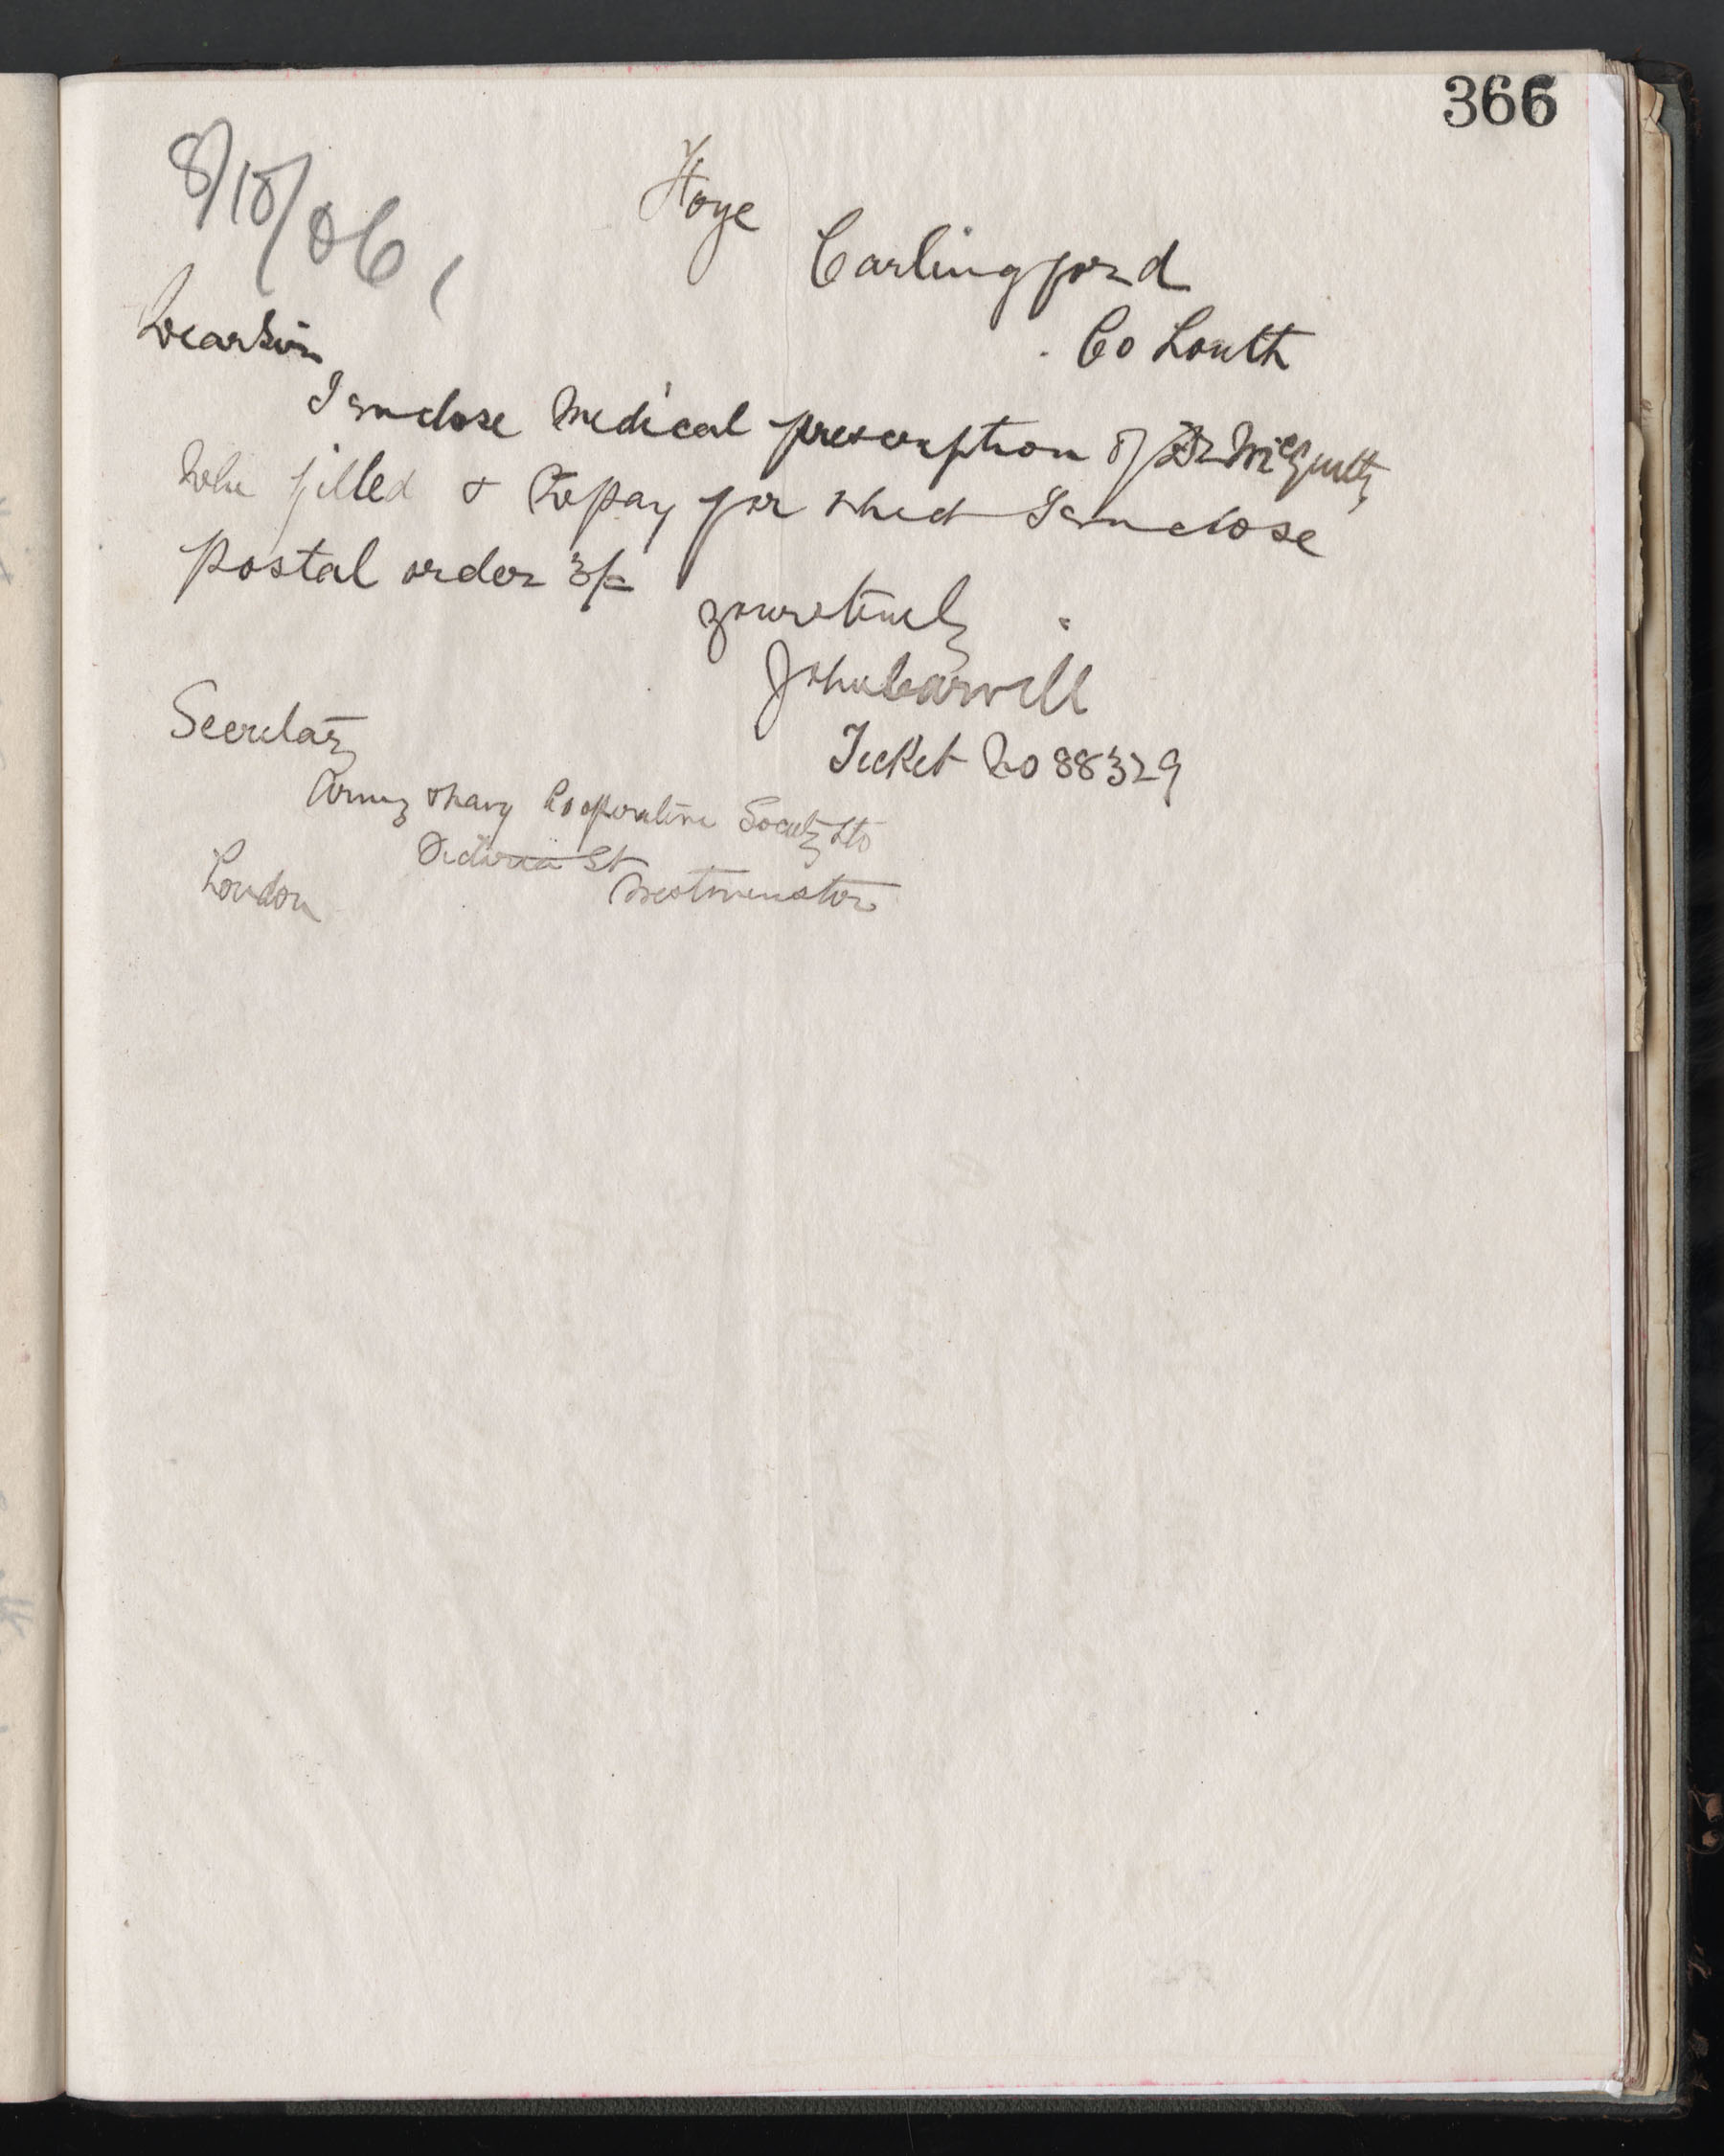 366
8/10/06
Carlingford
Co Louth
Dear Sir
I enclose Medical prescription of Dr
filled & to pay for which I enclose
postal order 3/=
yours truly
John Carvill
Ticket No 88329
Secretary
Army & Navy Cooperative Society Ltd
Victoria St
Westminster
London